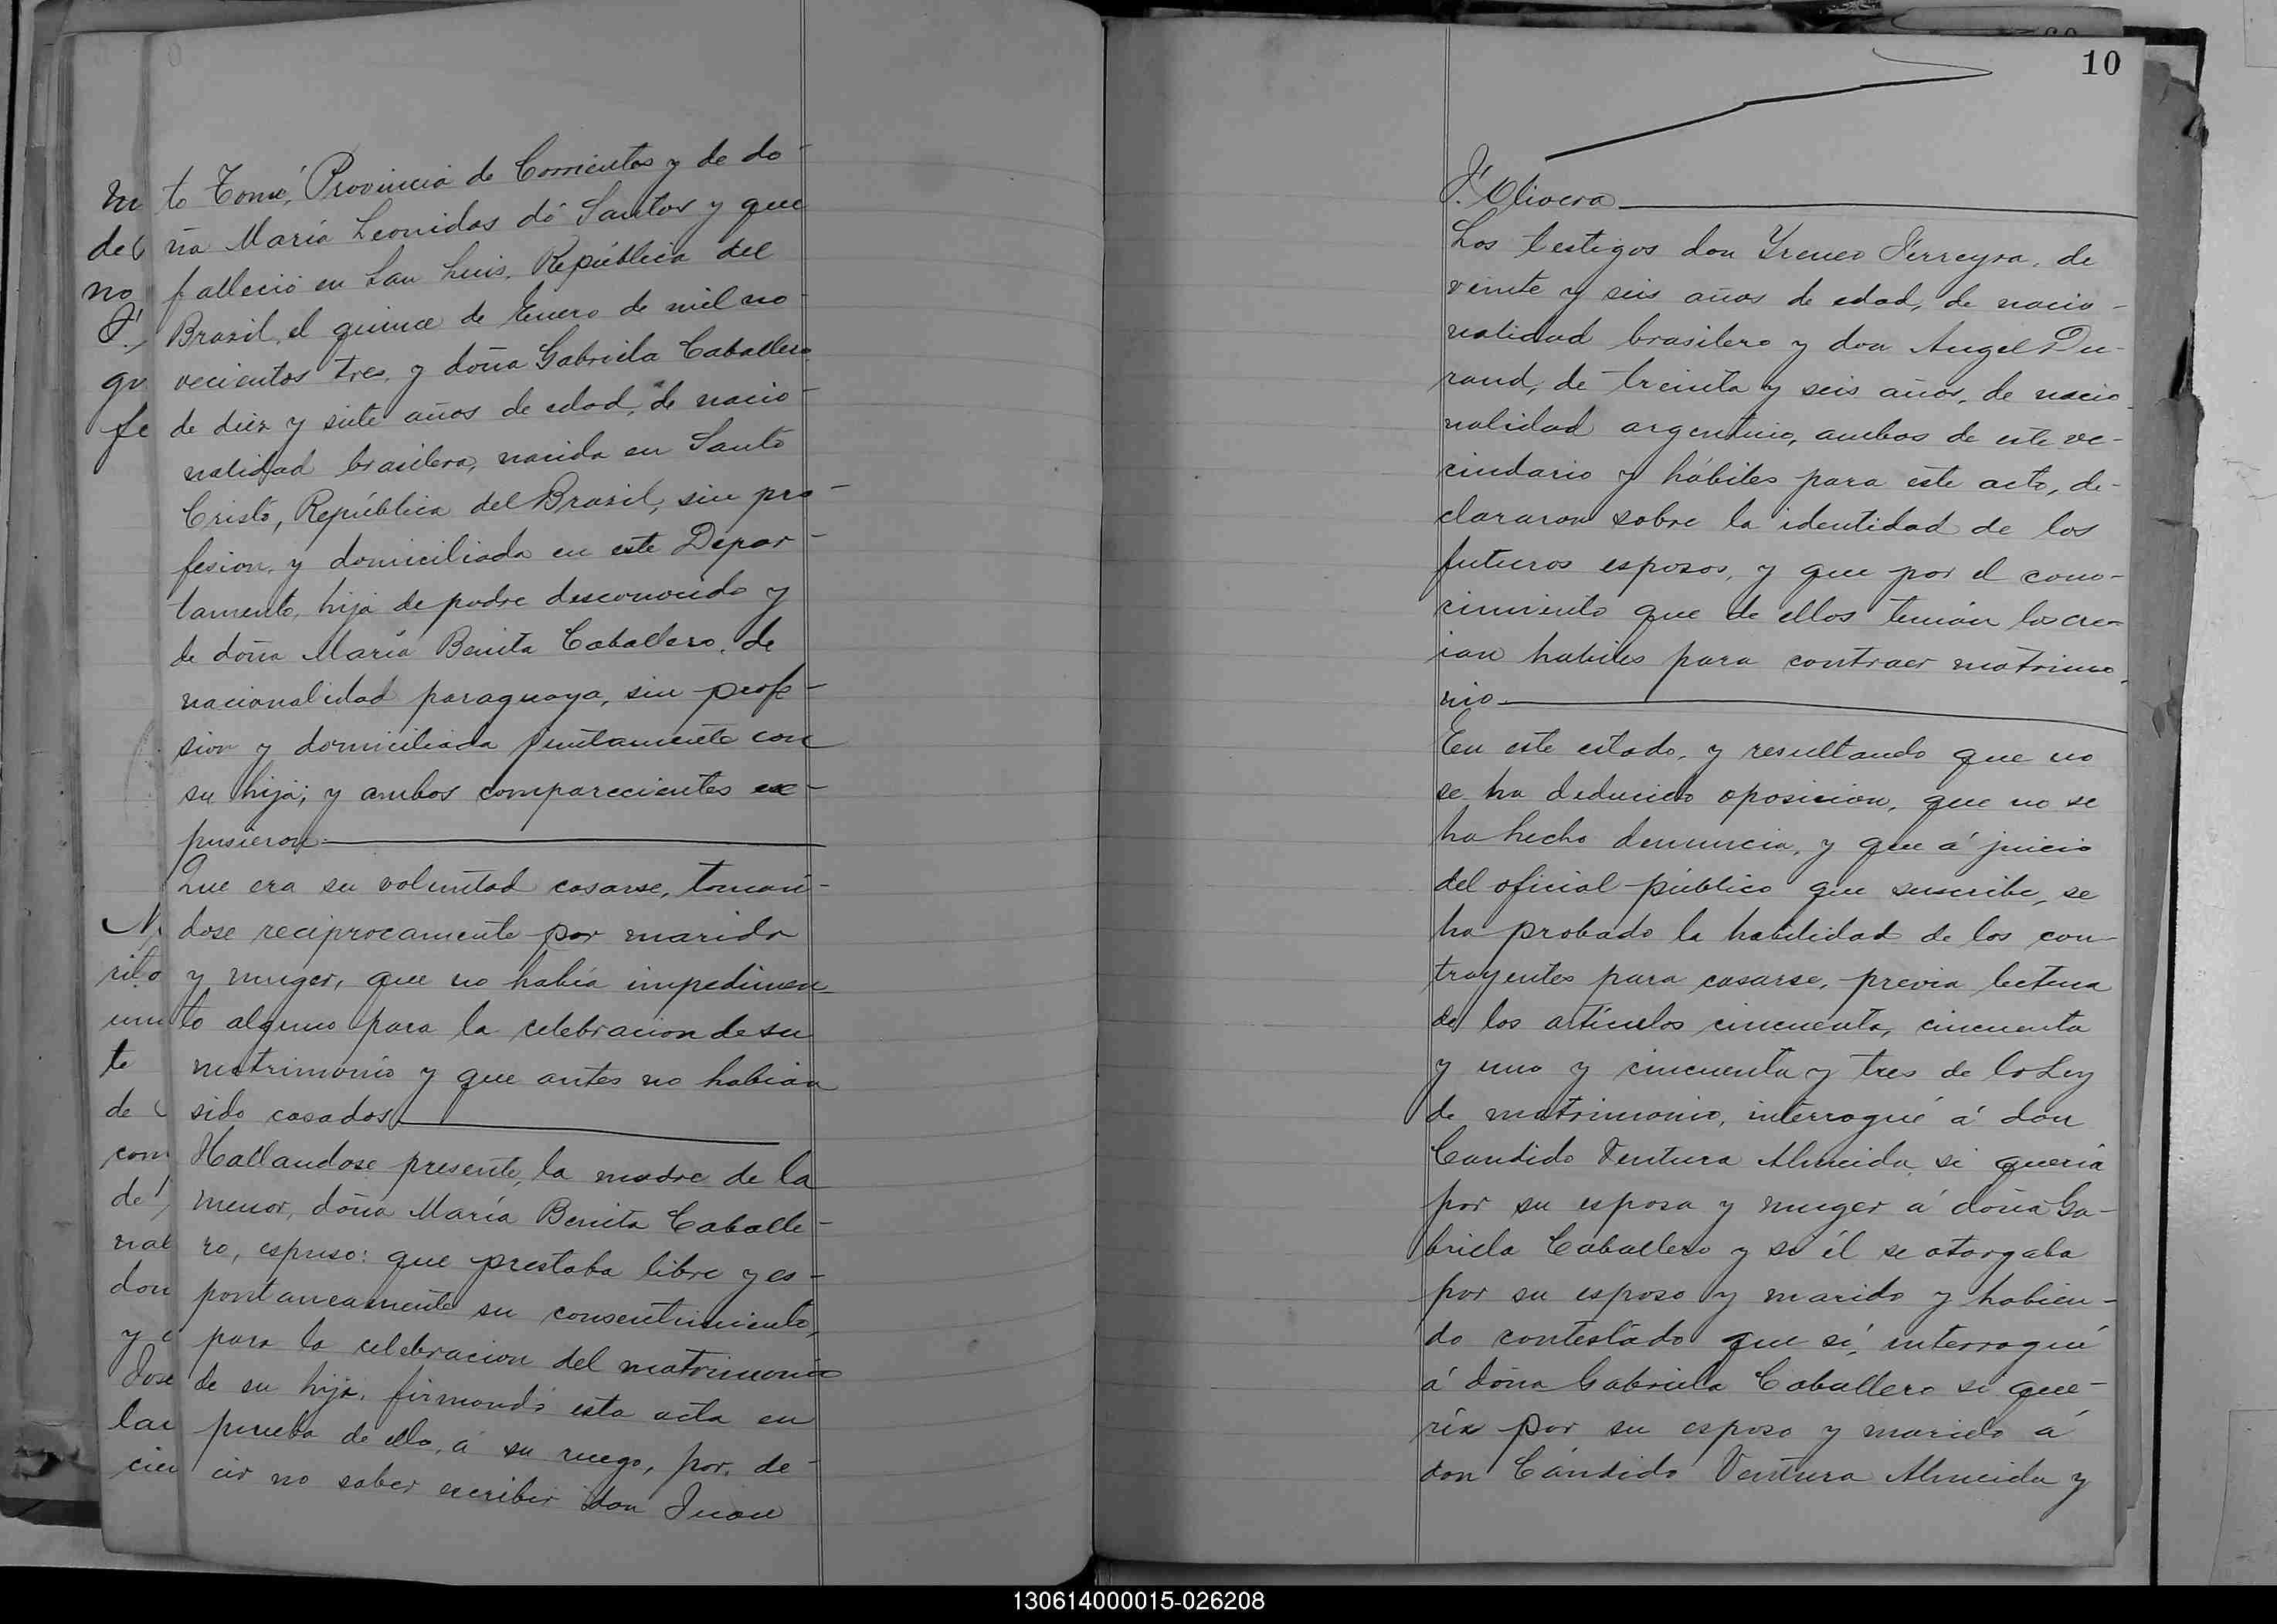 to Tomé, Provincia de Corrientes y de do-
ña María Leonidas dó Santos y que
falleció en San Luis, República del
Brazil, el quince de Enero de mil no-
vecientos tres, y doña Gabriela Caballero
de diez y siete años de edad, de nacio-
nalidad brasilera, nacida en Santo
Cristo, República del Brazil, sin pro-
fesion, y domiciliada en este Depar-
tamento, hija de padre desconocido y
de doña María Benita Caballero, de
nacionalidad paraguaya, sin profe-
sion y domiciliada juntamente con
su hija; y ambos comparecientes ex-
pusieron
Que era su voluntad casarse, toman-
dose reciprocamente por marido
y muger, que no había impedimen-
to alguno para la celebracion de su
matrimonio y que antes no habian
sido casados
Hallandose presente, la madre de la
menor, doña María Benita Caballe-
ro, espuso: que prestaba libre y es-
pontaneamente su consentimiento,
para la celebracion del matrimonio
de su hija, firmando esta acta en
prueba de ello, á su ruego, por de-
cir no saber escribir don Juan
10
F. Olivera
Los testigos don Yreneo Ferreyra, de
veinte y seis años de edad, de nacio-
nalidad brasilero y don Angel Du-
rand, de treinta y seis años, de nacio-
nalidad argentino, ambos de este ve-
cindario y hábiles para este acto, de-
clararon sobre la identidad de los
futuros esposos, y que por el cono-
cimiento que de ellos tenían los cre-
ian habiles para contraer matrimo-
nio
En este estado, y resultando que no
se ha deducido oposicion, que no se
ha hecho denuncia, y que á juicio
del oficial público que suscribe, se
ha probado la habilidad de los con-
trayentes para casarse, previa lectura
de los artículos cincuenta, cincuenta
y uno y cincuenta y tres de la Ley
de matrimonio, interrogué á don
Candido Ventura Almeida si quería
por su esposa y muger á doña Ga-
briela Caballero y si él se otorgaba
por su esposo y marido y habien-
do contestado que sí, interrogué
á doña Gabriela Caballero si que-
ría por su esposo y marido á
don Cándido Ventura Almeida y
130614000015-026208